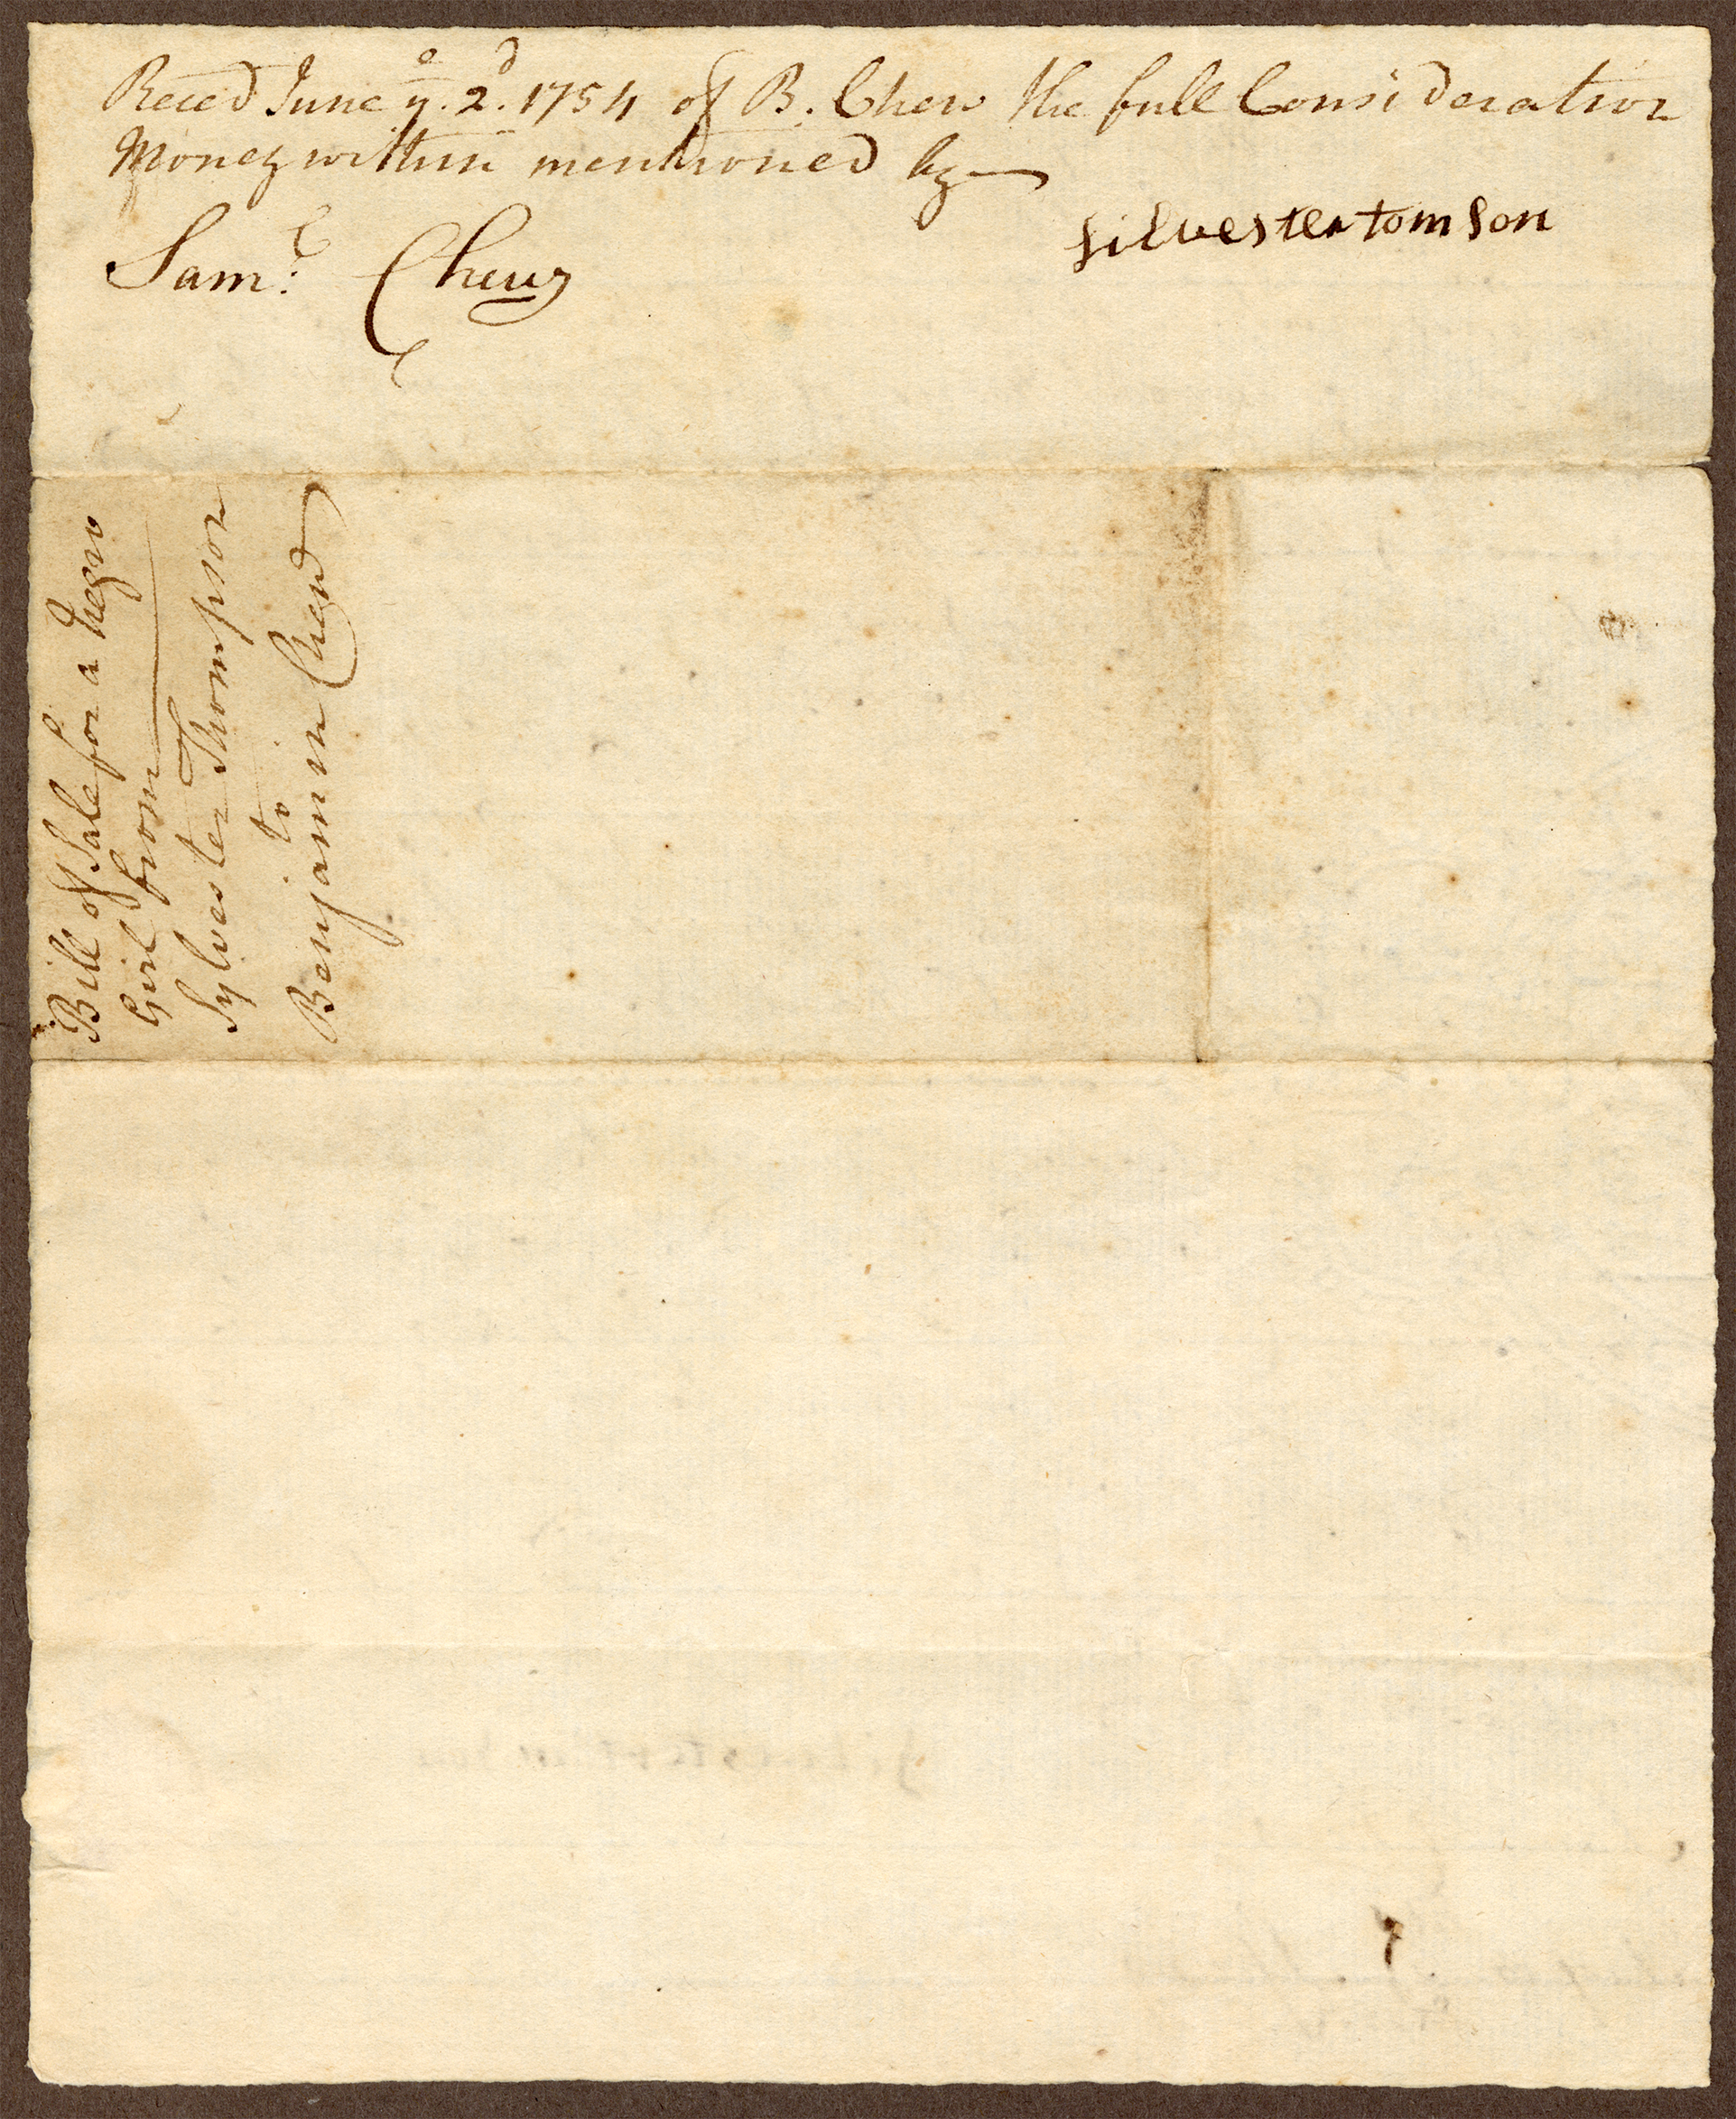 Reced June yᵉ. 2ᵈ. 1754 of B. Chew the full Consideration
Money within mentioned by
silvester tomson
Samˡ: Chew
Bill of Sale for a Negro
Girl from
Sylvester Thompson
to
Benjamin Chew